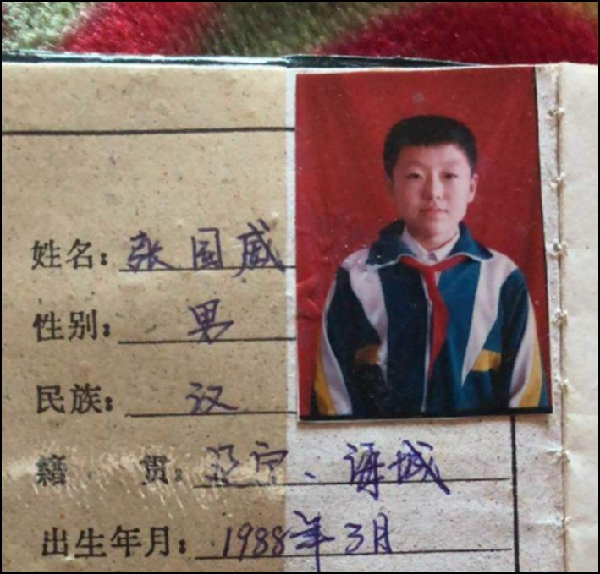 姓名：张国威
性别：男
民族：汉
籍贯：辽宁、海城
出生年月：1988年3月